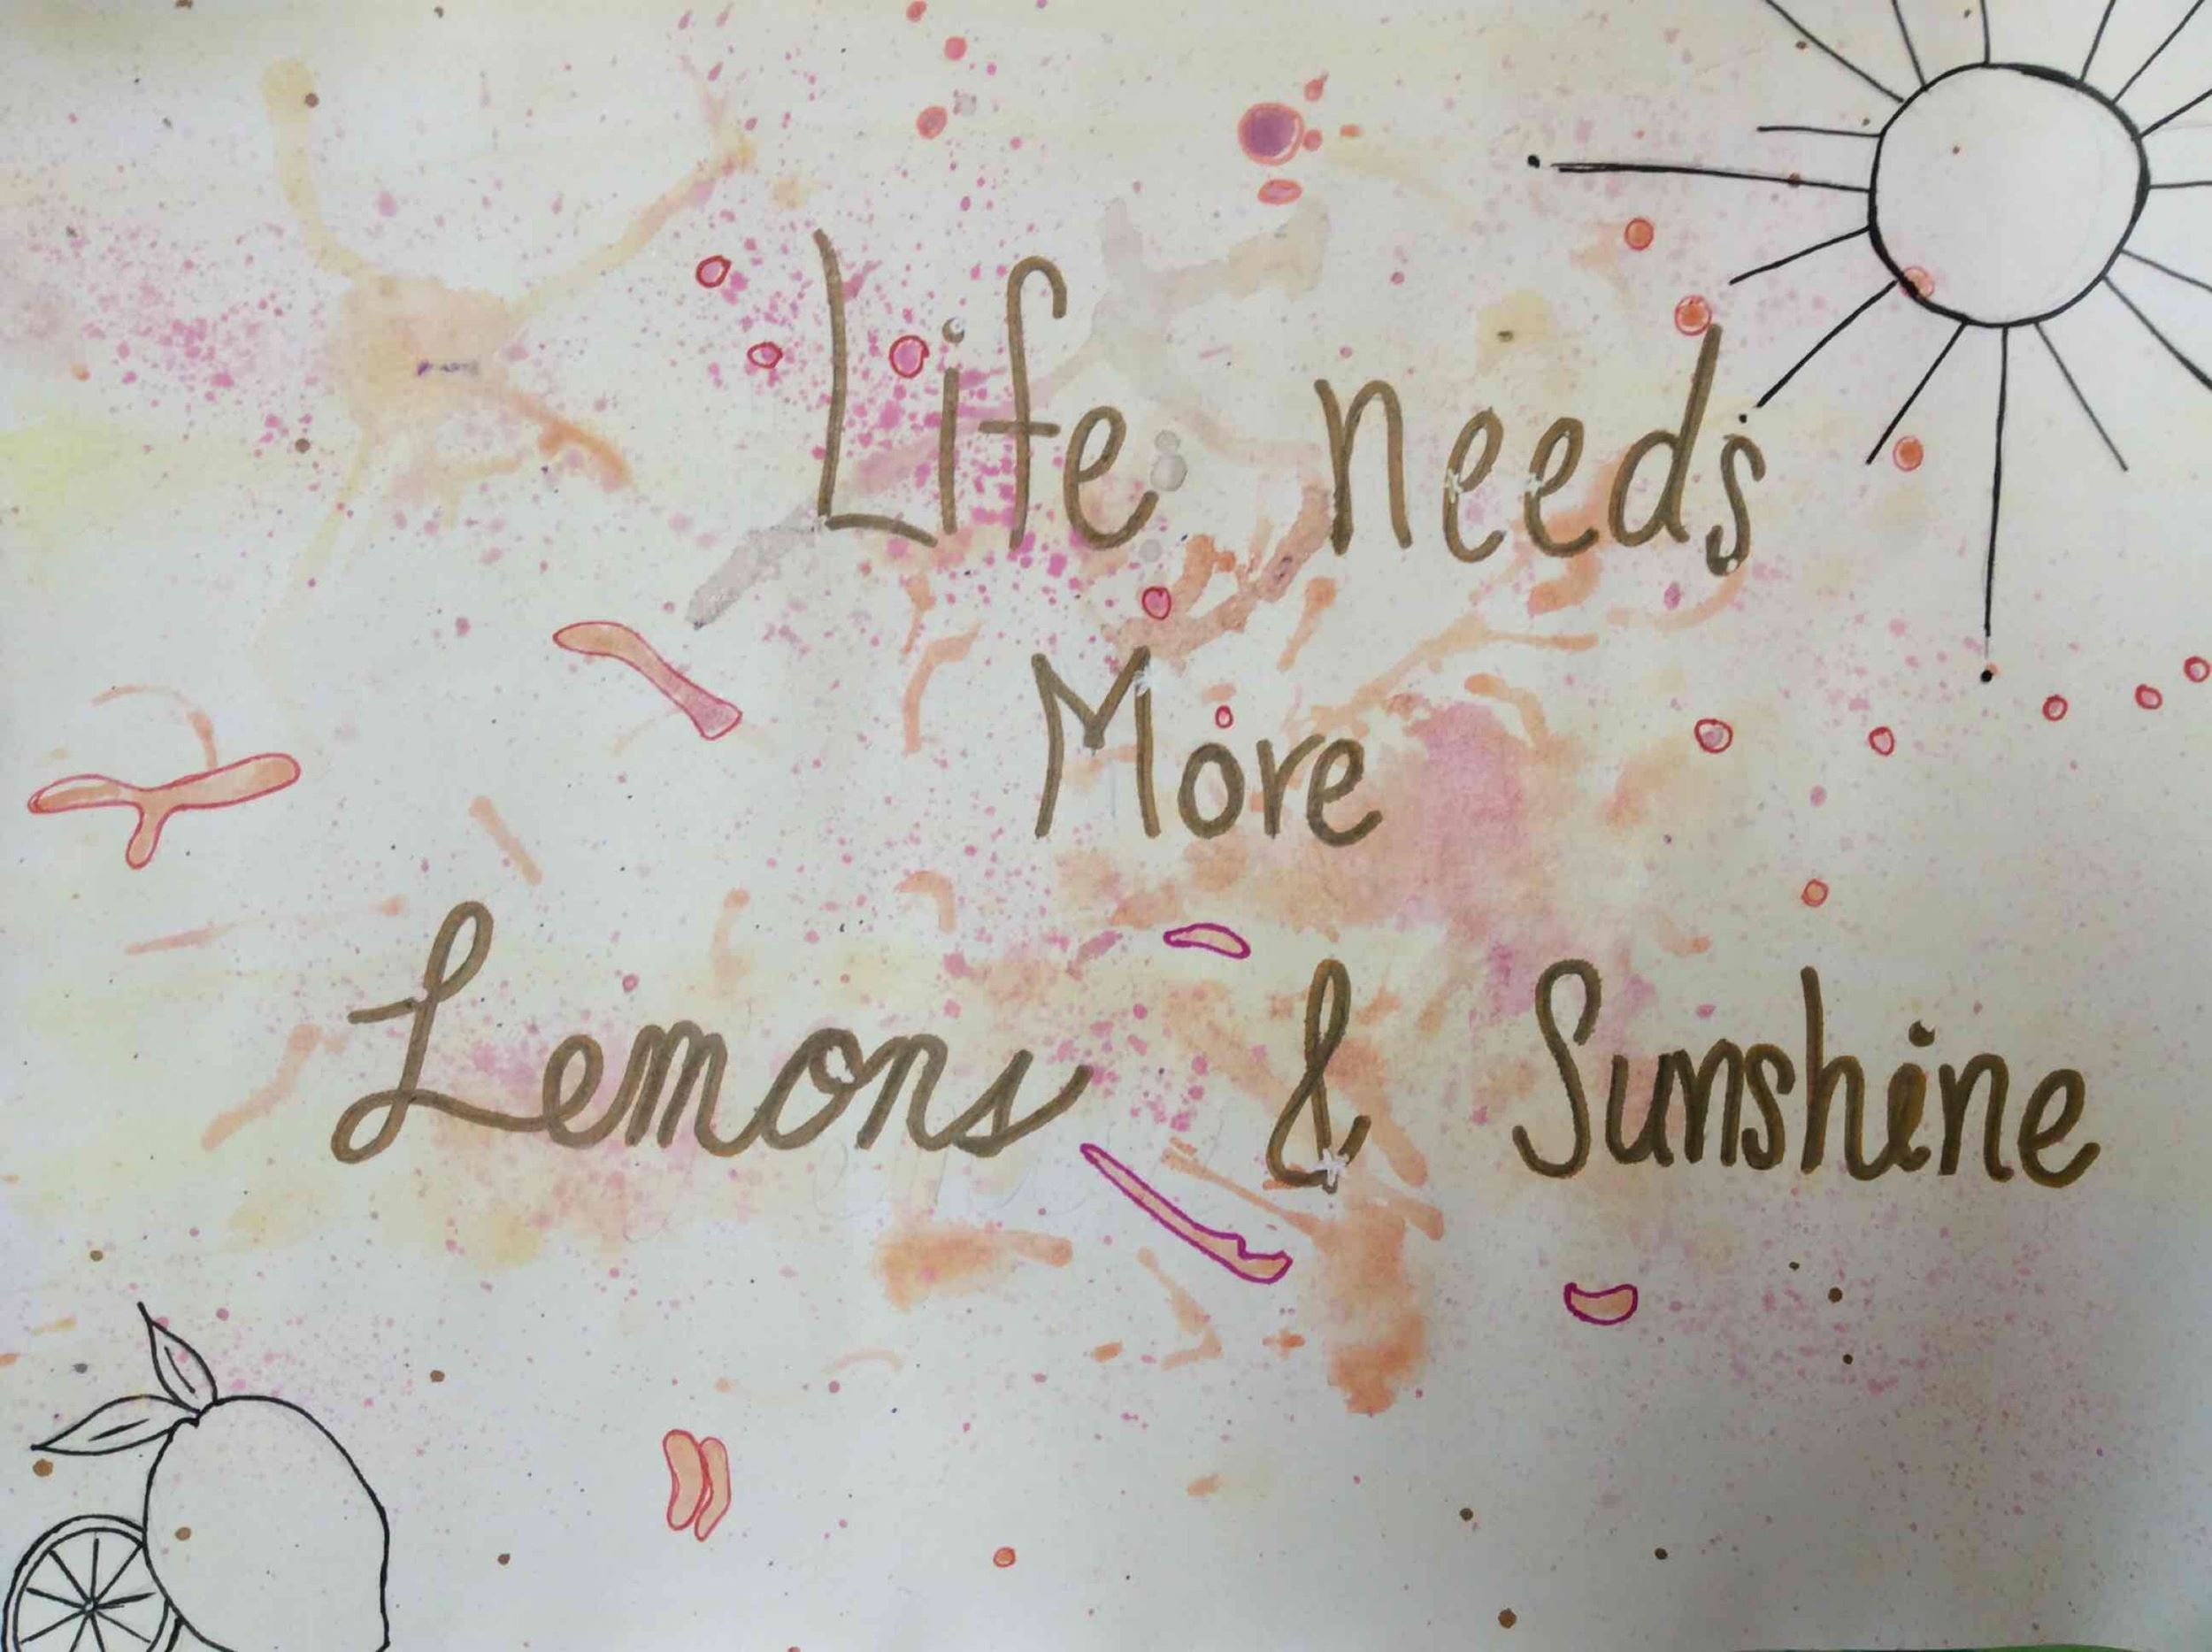 Life needs
More
Lemons & Sunshine